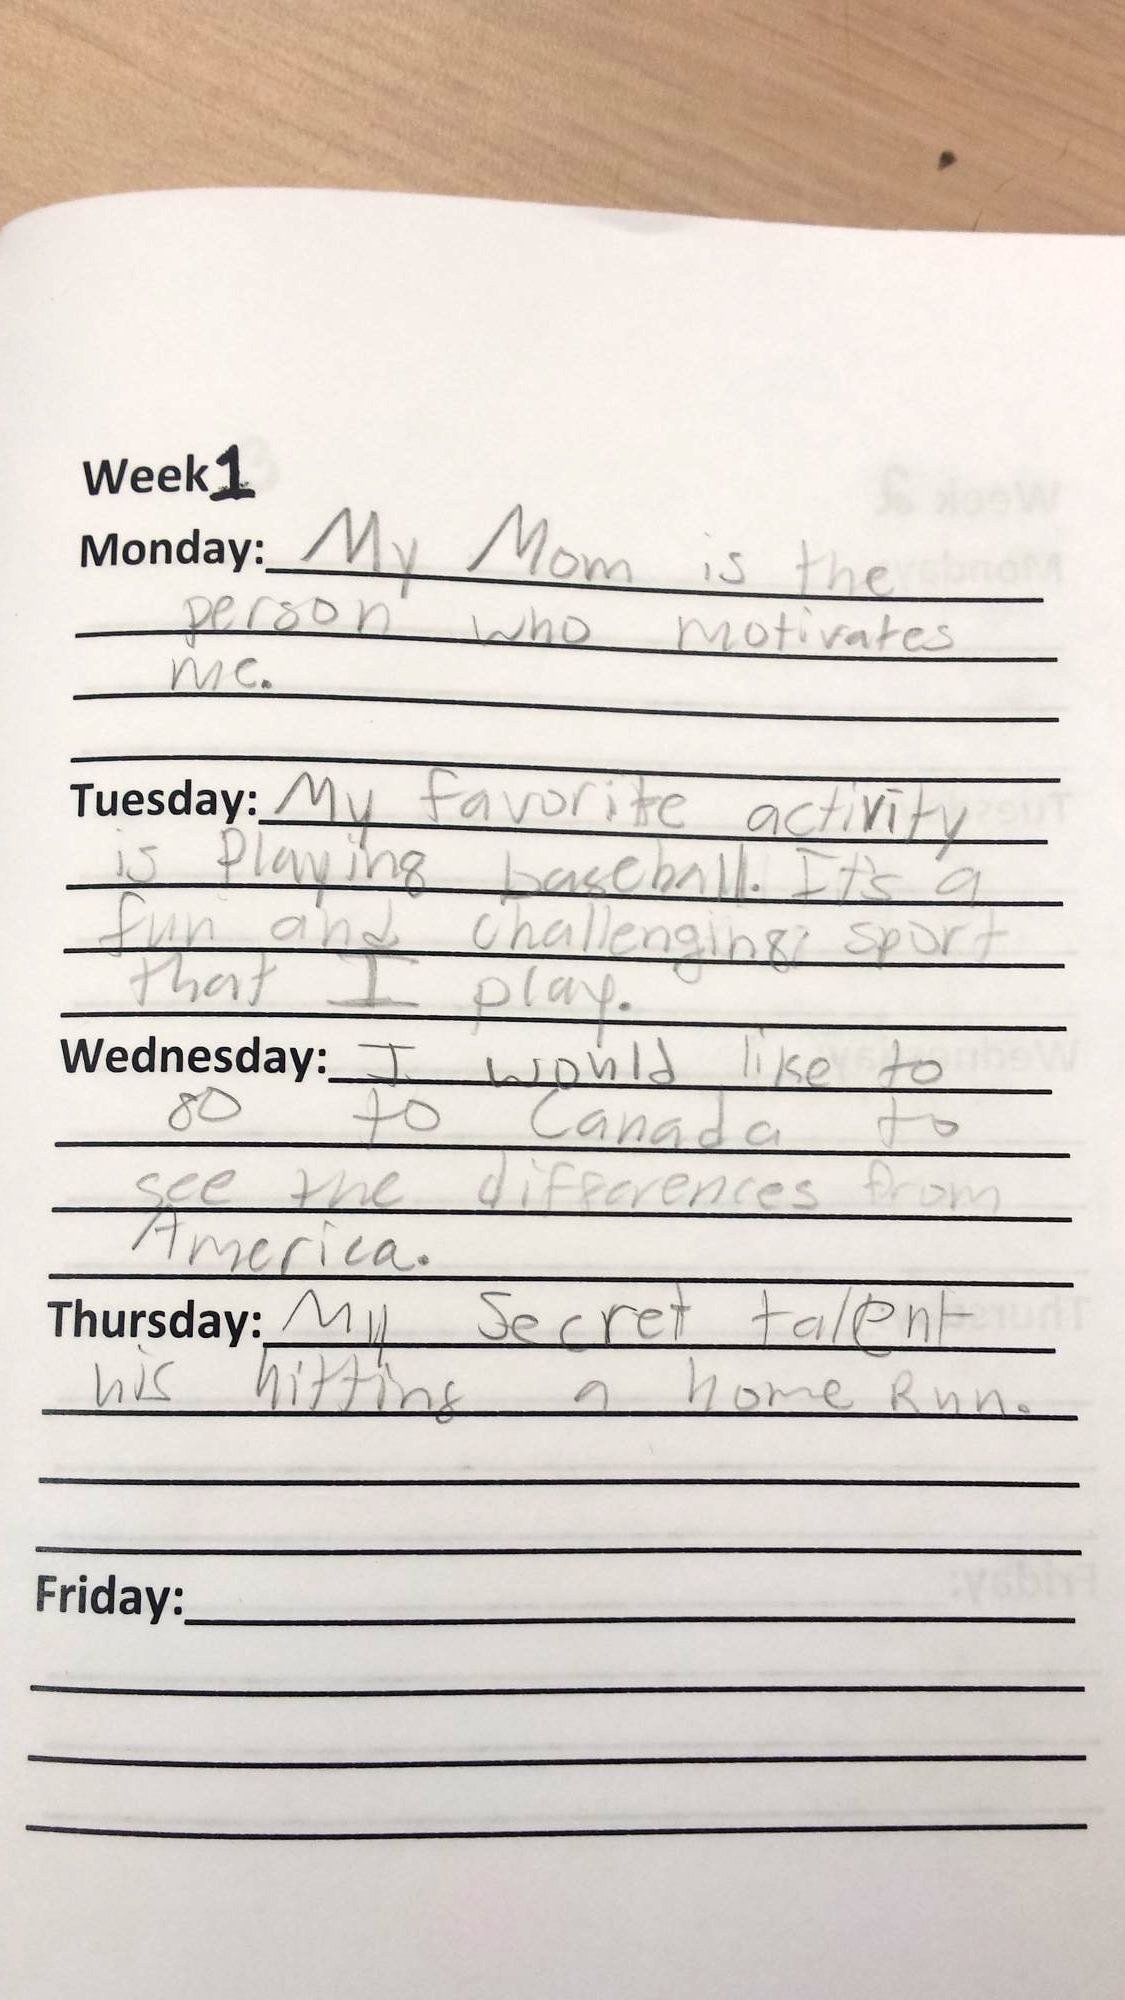 Week 1
Monday: My Mom is the
person who motivates
me.
Tuesday: My favorite activity
is Playing baseball. It's a
fun and challenging sport
that I play.
Wednesday: I would like to
go to Canada to
see the differences from
America.
Thursday: My Secret talent
his hitting a home Run.
Friday: